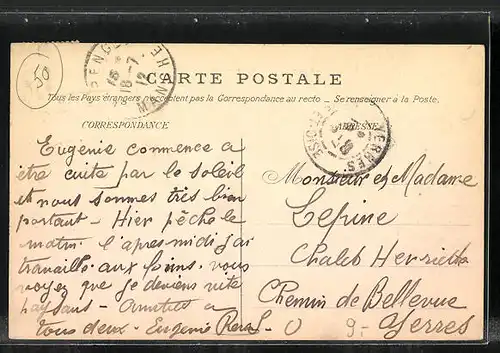 50
CARTE POSTALE
Tous les Pays étrangers n'acceptent pas la Correspondance au recto. — Se renseigner à la Poste.
CORRESPONDANCE
ADRESSE
Eugénie commence a
être cuite par le soleil
et nous sommes très bien
portant - Hier pêche le
matin l'apres-midi j'ai
travaillé aux foins. vous
voyez que je deviens vite
paysans - Amitiés a
tous deux - Eugénie
Monsieur et Madame
Lepine
Chalet Henriette
Chemin de Bellevue
Yerres
S. - O